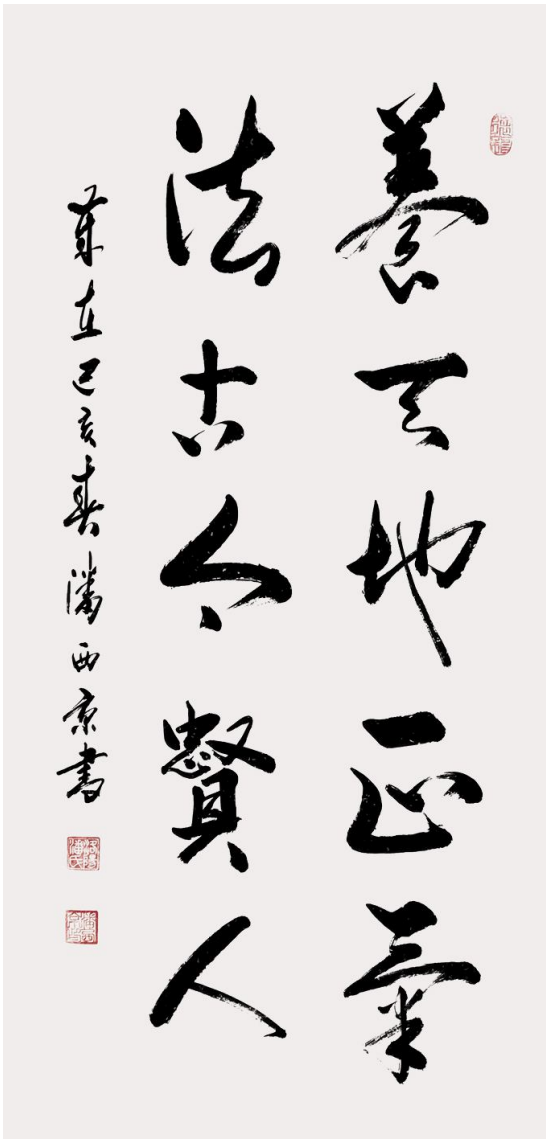 養天地正氣
法古今賢人
歲在己亥春潘西京書